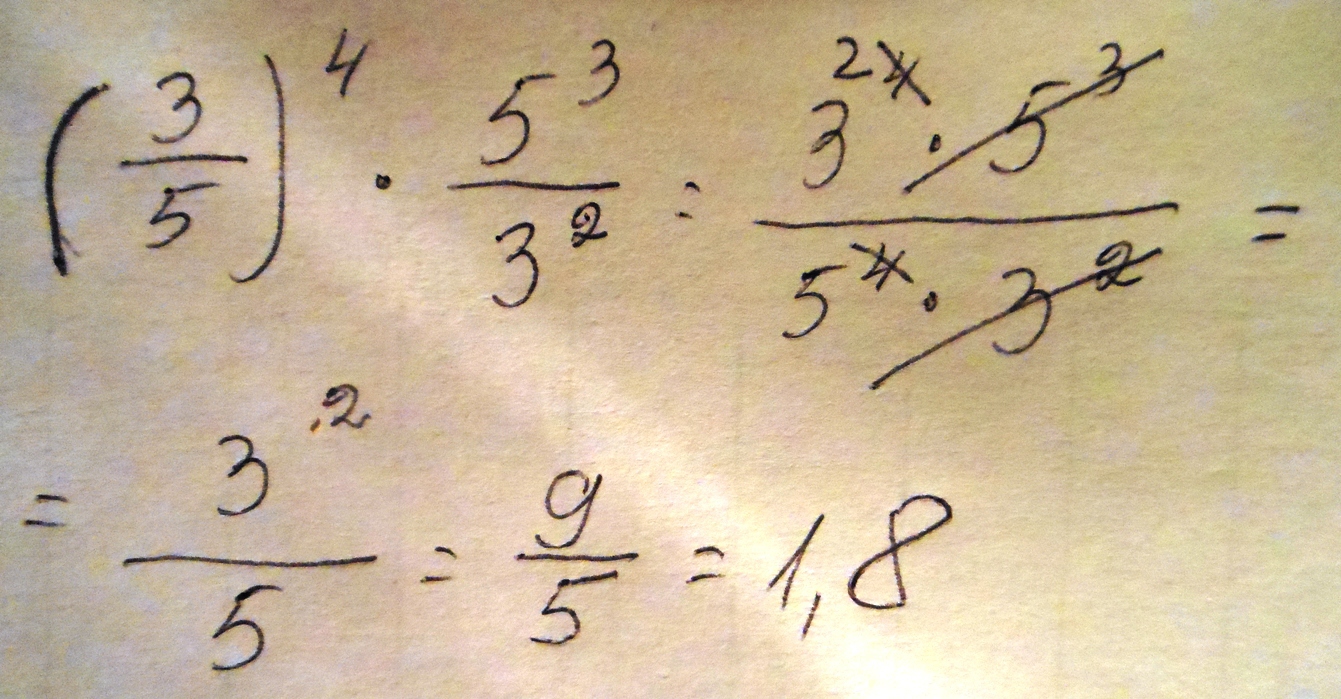 (3/5)^4 · 5^3/3^2 = 3^2̶4̶ · 5^3/5^4 · 3^2 =
= 3^2/5 = 9/5 = 1,8